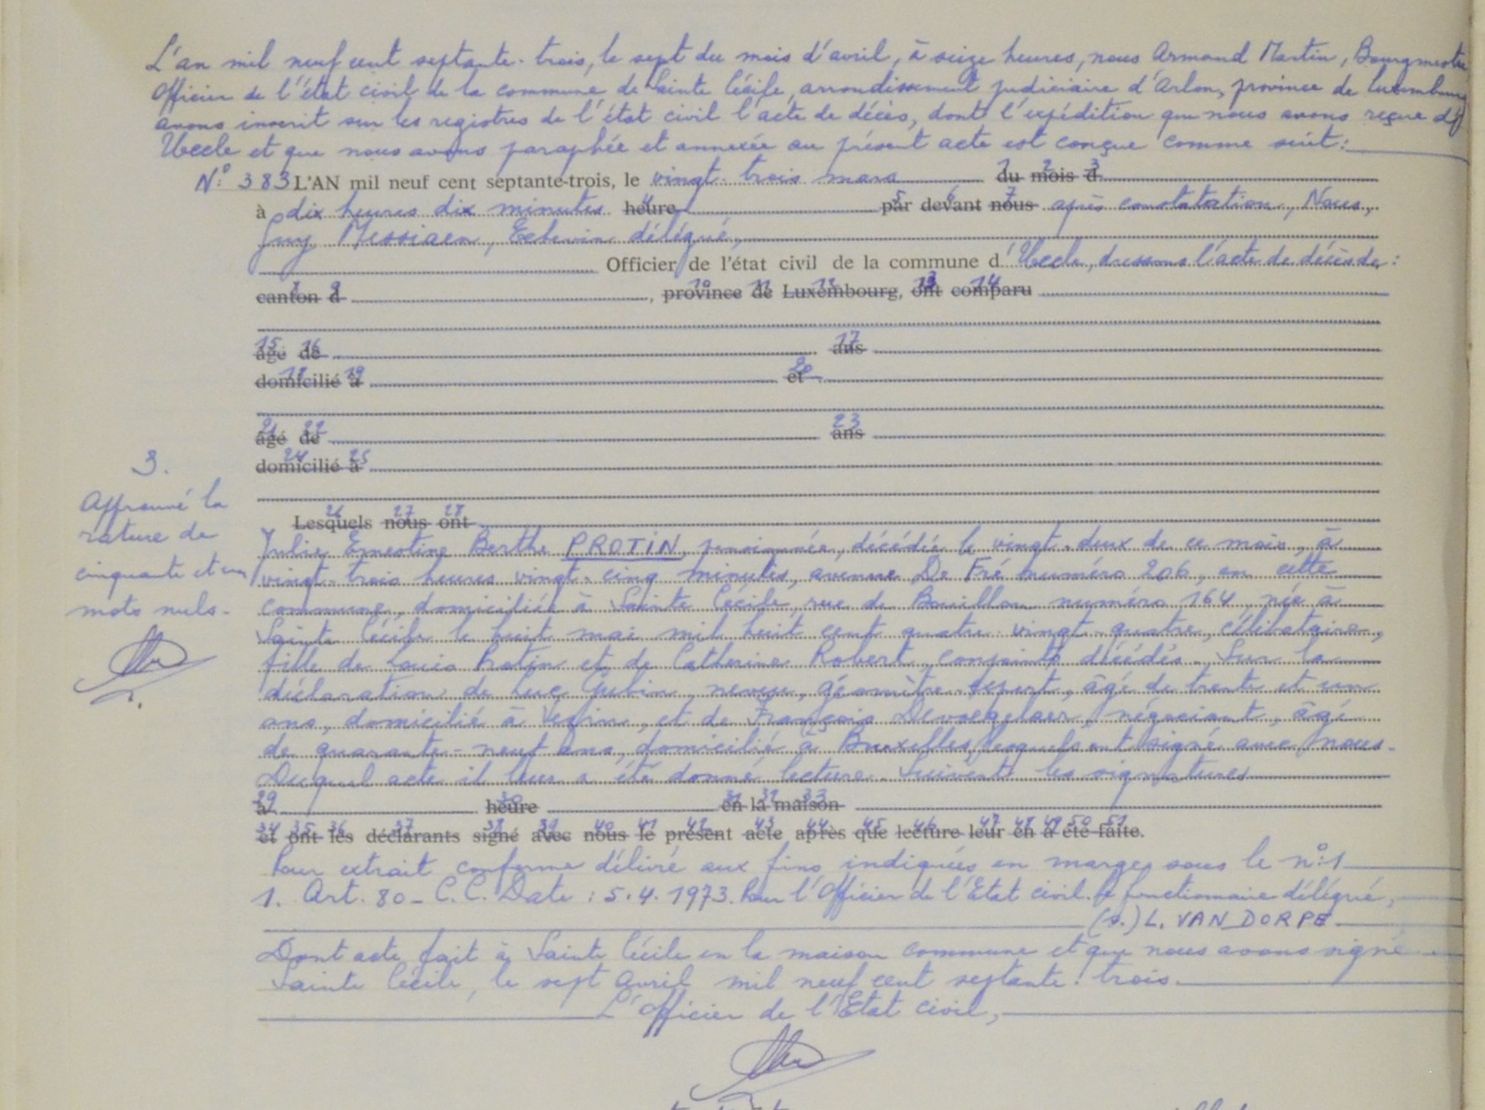 L'an mil neuf cent septante-trois, le sept du mois d'avril, à seize heures, nous Armand Martin, Bourgmestre
Officier de l'état civil de la commune de Sainte Cécile, arrondissement judiciaire d'Arlon, province de Luxembourg
avons inscrit sur les registres de l'état civil l'acte de décès, dont l'expédition que nous avons reçue d'
Uccle et que nous avons paraphée et annexée au présent acte est conçue comme suit :
N° 383 L'AN mil neuf cent septante-trois, le vingt-trois mars du mois d
1 2 3
à dix heures dix minutes heure par devant nous après constatation, Nous,
4 5 6 7
Guy Messiaen, Echevin délégué,
Officier de l'état civil de la commune d'Uccle, dressons l'acte de décès de :
canton d , province de Luxembourg, ont comparu
8 9 10 11 12 13 14
âgé de ans
15 16 17
domicilié à et
18 19 20
âgé de ans
21 22 23
domicilié à
24 25
Lesquels nous ont
26 27 28
3.
Approuvé la
rature de
cinquante et un
mots nuls.
Julie Ernestine Berthe PROTIN, pensionnée, décédée le vingt-deux de ce mois, à
vingt-trois heures vingt-cinq minutes, avenue De Fré numéro 206, en cette
commune, domiciliée à Sainte Cécile, rue de Bouillon numéro 164, née à
Sainte Cécile le huit mai mil huit cent quatre-vingt-quatre, célibataire,
fille de Louis Protin et de Catherine Robert, conjoints décédés. Sur la
déclaration de Luc Gubin, neveu, géomètre-expert, âgé de trente et un
ans, domicilié à , et de François Devogelaer, négociant, âgé
de quarante-neuf ans, domicilié à Bruxelles, lesquels ont signé avec Nous.
Duquel acte il leur a été donné lecture. Suivent les signatures
à heure en la maison
29 30 31 32 33
et ont les déclarants signé avec nous le présent acte après que lecture leur en a été faite.
34 35 36 37 38 39 40 41 42 43 44 45 46 47 48 49 50 51
Pour extrait conforme délivré aux fins indiquées en marge sous le n° : 1
1. Art. 80 - C.C. Date : 5.4.1973. Pour l'Officier de l'Etat civil. Le fonctionnaire délégué,
(s.) L. VAN DORPE
Dont acte fait à Sainte Cécile en la maison commune et que nous avons signé
Sainte Cécile, le sept avril mil neuf cent septante-trois.
L'Officier de l'Etat civil,